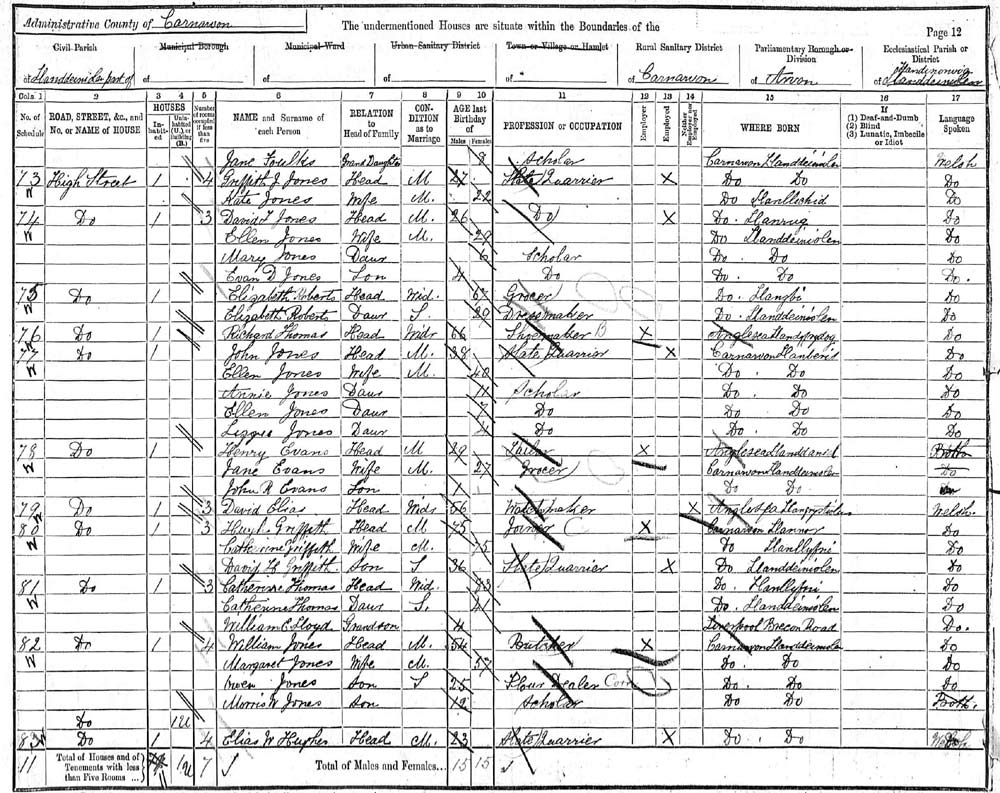 Administrative County of Carnarvon The undermentioned Houses are situate within the Boundaries of the Page 12
Civil Parish Municipal Borough Municipal Ward Urban Sanitary District Town or Village or Hamlet Rural Sanitary District Parliamentary Borough or Division Ecclesiastical Parish or District
of Llanddeiniolen part of of of of of of Carnarvon of Arvon of Llanddeiniolen
Cols. 1 2 3 4 5 6 7 8 9 10 11 12 13 14 15 16 17
No. of Schedule ROAD, STREET, &c., and No. or NAME of HOUSE HOUSES Inhabited Uninhabited (U.), or Building (B.) Number of rooms occupied if less than five NAME and Surname of each Person RELATION to Head of Family CONDITION as to Marriage AGE last Birthday of Males Females PROFESSION or OCCUPATION Employer Employed Neither Employer nor Employed WHERE BORN If (1) Deaf-and-Dumb (2) Blind (3) Lunatic, Imbecile or Idiot Language Spoken
Jane Foulks Grand Daughter 8 Scholar Carnarvon Llanddeiniolen Welsh
73 High Street 1 4 Griffith J Jones Head M 27 Slate Quarrier X Do Do Do
W Kate Jones Wife M. 22 Do Llanllechid Do
74 Do 1 3 David T Jones Head M. 26 Do X Do. Llanrug Do
W Ellen Jones Wife M. 29 Do Llanddeiniolen Do
Mary Jones Daur 6 Scholar Do. Do Do
Evan D Jones Son 4 Do Do. Do Do.
75 Do 1 Elizabeth Roberts Head Wid. 67 Grocer Do. Llangbi Do
W Elizabeth Roberts Daur S 29 Dressmaker Do. Llanddeiniolen Do
76 Do 1 Richard Thomas Head Widr 66 Shoemaker B X Anglesea Do
77 Do 1 John Jones Head M. 38 Slate Quarrier X Carnarvon Llanberis Do
W Ellen Jones Wife M. 40 Do. Do Do
Annie Jones Daur 11 Scholar Do. Do Do
Ellen Jones Daur 7 Do Do Do Do
Lizzie Jones Daur 4 Do Do. Do Do
78 Do 1 Henry Evans Head M 29 Tailor X Anglesea Llanddaniel Both
W Jane Evans Wife M. 27 Grocer Carnarvon Llanddeiniolen Do
John R Evans Son 1 Do Do
79 Do 1 3 David Elias Head Widr 66 Watchmaker X Anglesea Welsh
80 W Do 1 3 Hugh Griffith Head M 75 Joiner C X Carnarvon Llannor Do
W Catherine Griffith Wife M. 75 Do Llanllyfni Do
David H Griffith Son S 36 Slate Quarrier X Do Llanddeiniolen Do
81 Do 1 3 Catherine Thomas Head Wid. 83 Do. Llanllyfni Do
W Catherine Thomas Daur S. 41 Do. Llanddeiniolen Do
William E Lloyd Grandson 4 Liverpool Brecon Road Do.
82 Do 1 4 William Jones Head M. 54 Butcher X Carnarvon Llanddeiniolen Do
W Margaret Jones Wife M. 57 Do. Do Do
Owen Jones Son S 25 Flour Dealer Corn Do. Do Do
Morris W Jones Son 12 Scholar Do Do Both.
Do 1U
83 W Do 1 4 Elias W Hughes Head M. 23 Slate Quarrier X Do. Do Welsh
11 Total of Houses and of Tenements with less than Five Rooms ... 11 1U 7 Total of Males and Females... 15 15